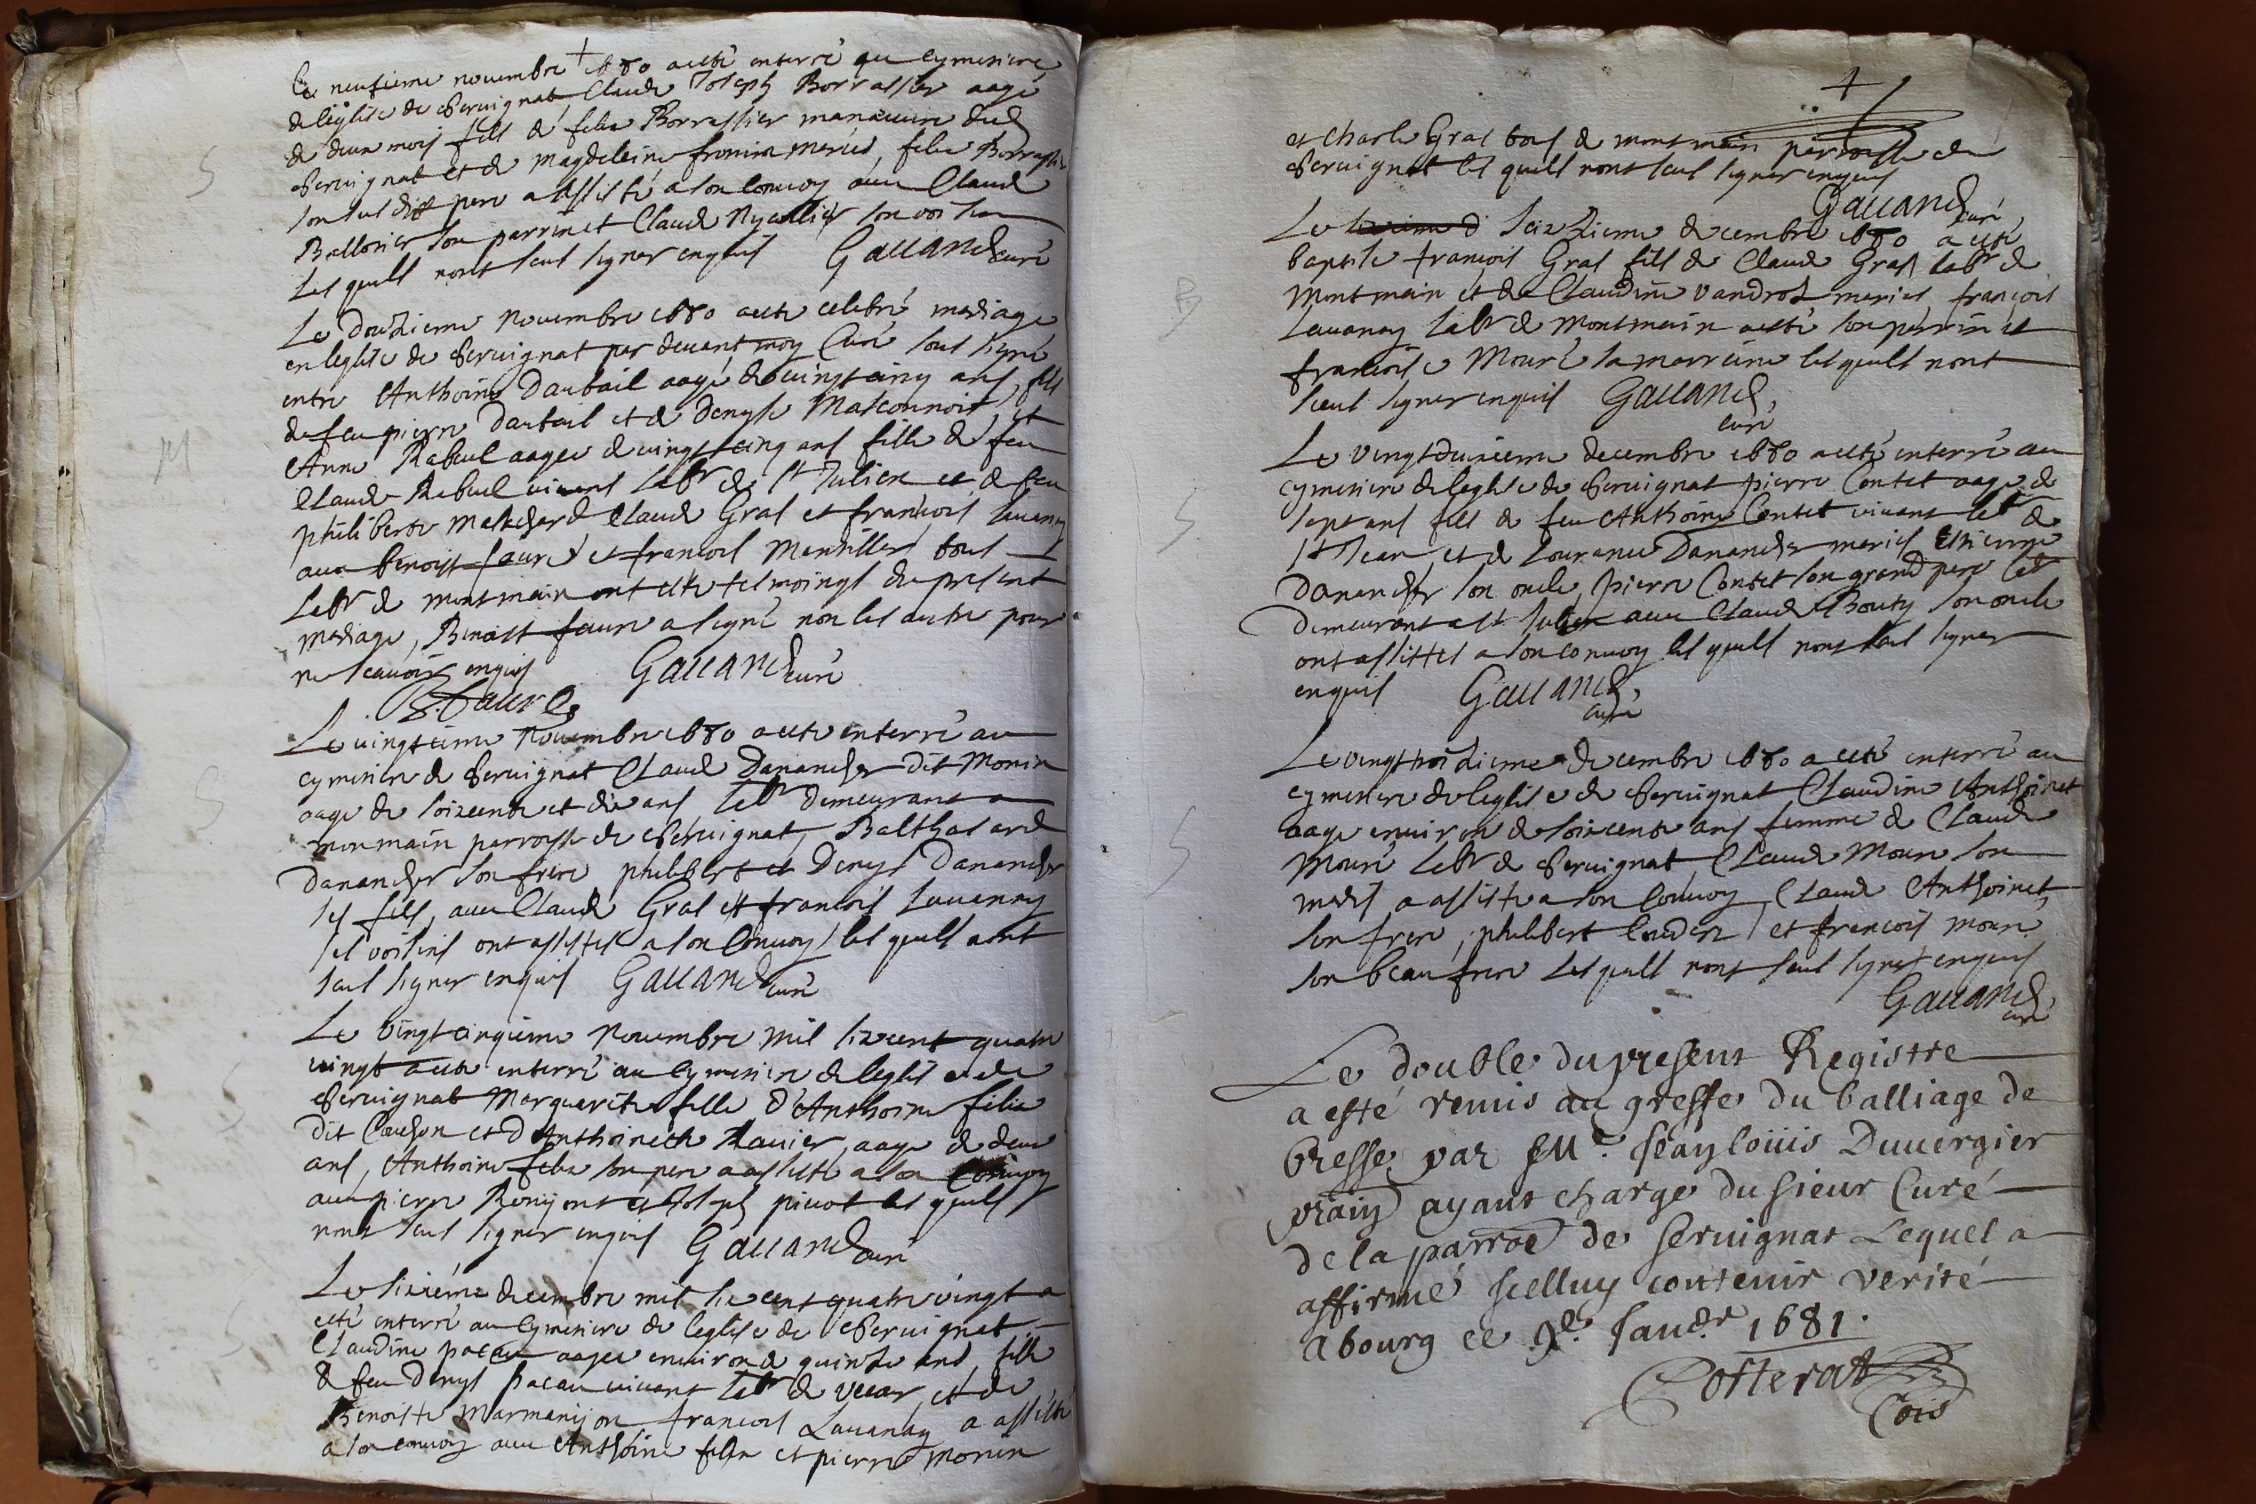 Le neufieme novembre 1680 a esté enterré au cymetiere
de leglise de Servignat Claude Joseph Borrassier aagé
de deux mois fils de felix Borrassier manœuvre dud
Servignat et de Magdeleine mariés, felix Borrassier
son susditt pere a assisté a son convoy avec Claude
Ballorier son parrin et Claude son voisin
lesquels nont sceut signer enquis Galland curé
Le douzieme Novembre 1680 a esté celebré mariage
en leglise de Servignat par devant moy Curé sous signé
entre Anthoine Dartail aagé de vingt cinq ans, fils
de feu pierre Dartail et de Denyse Masconnois, et
Anne Rebeul aagee de vingt cinq ans fille de feu
Claude Rebeul vivant labr de St Julien et de feu
philiberte Claude Gras et francois Lavanay
avec benoist faure et francois tous
labr de montmain ont esté tesmoings du present
mariage, Benoist faure a signé non les autre pour
ne scavoir enquis Galland curé
B. faure
Le vingtieme Novembre 1680 a esté enterré au
cymetiere de Servignat Claude Danancher dit Monin
aagé de soixente et dix ans labr demeurant a
monmain parroisse de Servignat, Balthasard
Danancher son frere philibert et Denys Danancher
ses fils, avec Claude Gras et francois Lavanay
ses voisins ont assistés a son Convoy lesquels nont
sceut signer enquis Galland curé
Le vingt cinquieme Novembre mil sixcent quatre
vingt a esté enterré au Cymetiere de leglise de
Servignat Marguerite fille d'Anthoine felix
dit et d Anthoinette Ravier, aagé de deux
ans, Anthoine felix son pere a assisté a son Convoy
avec pierre et Joseph pivot lesquels
nont sceut signer enquis Galland curé
Le sixiéme decembre mil six cent quatre vingt a
esté enterré au Cymetiere de leglise de Servignat
Claudine pacau aagee environ de quinze ans, fille
de feu Denys pacau vivant labr de et de
Benoiste francois Lavanay a assisté
a son convoy avec Anthoine felix et pierre Monin
et Charle Gras tous de montmain parroisse de
Servignat lesquels nont sceut signer enquis
Galland curé
Le seizieme decembre 1680 a esté
baptisé francois Gras fils de Claude Gras labr de
Montmain et de Claudine Vandrot mariés francois
Lavanay labr de Montmain a esté son parrin et
francoise Mouré sa marreine lesquels nont
sceut signer enquis Galland
curé
Le vingt decembre 1680 a esté enterré au
cymetiere de leglise de Servignat pierre Contet aagé de
sept ans fils de feu Anthoine Contet vivant labr de
St Jean et de Lourance Danancher mariés Estienne
Danancher son oncle, pierre Contet son grand pere labr
demeurant a St Julien avec Claude Bouty son oncle
ont assistés a son convoy lesquels nont sceut signer
enquis Galland
curé
Le vingt troizieme decembre 1680 a esté enterré au
cymetiere de leglise de Servignat Claudine Anthoinet
aagé environ de soixcente ans femme de Claude
Mouré labr de Servignat, Claude Mouré son
maris a assisté a son Convoy Claude Anthoinet
son frere, philibert et francois mouré
son beau frere Lesquels nont sceut signer enquis
Galland
curé
Le double du present Registre
a esté remis au greffe du balliage de
bresse par Mre Jean louis Duvergier
pratn ayant charge du sieur Curé
de la parroe de Servignat Lequel a
affirmé icelluy contenir verité
a bourg ce 9e Janer 1681.
Cotterat
Cois
S
M
S
S
S
B
S
S